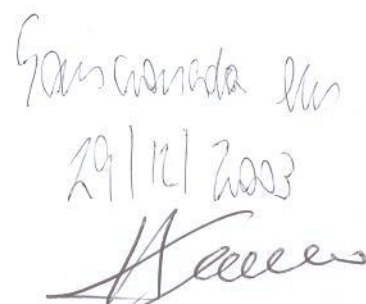 Sancionada em
29/12/2003